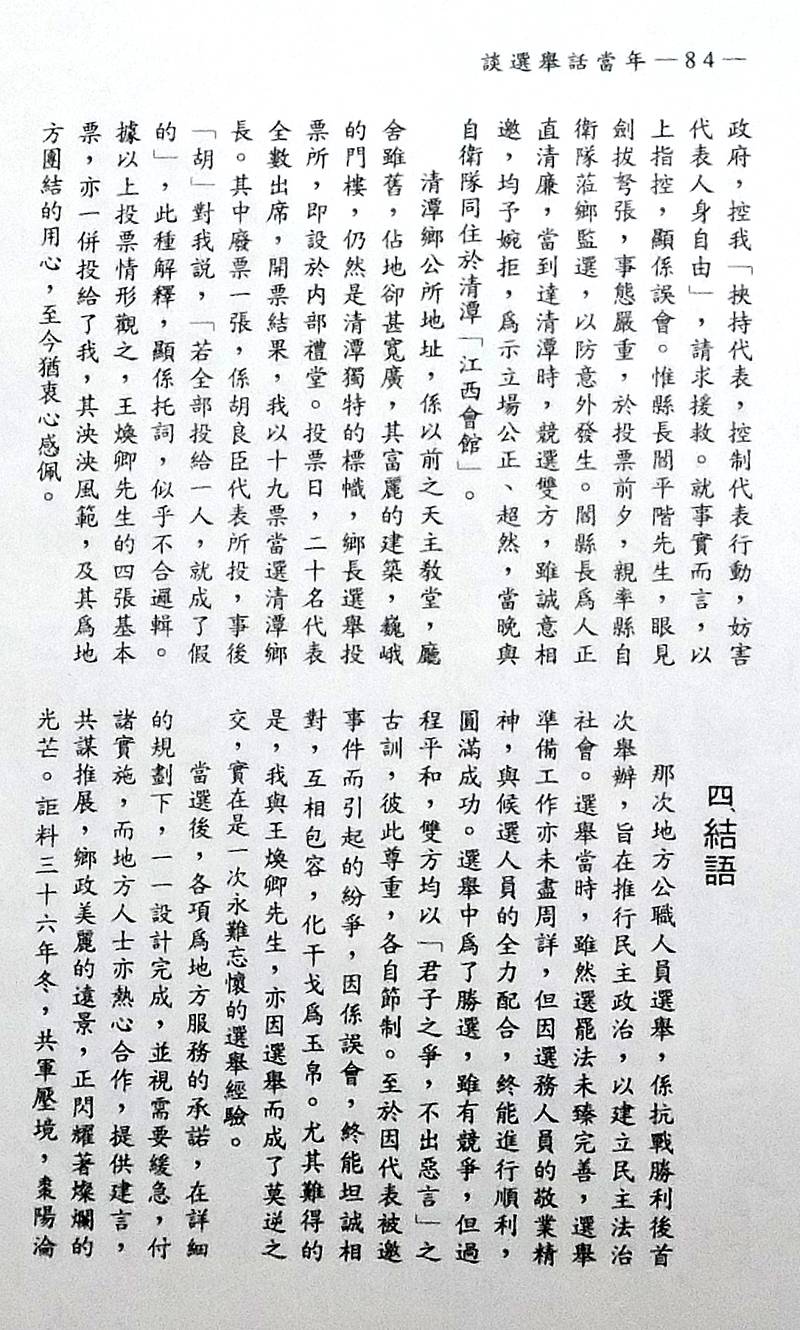 談選舉話當年—84—
政府，控我「挾持代表，控制代表行動，妨害
代表人身自由」，請求援救。就事實而言，以
上指控，顯係誤會。惟縣長閻平階先生，眼見
劍拔弩張，事態嚴重，於投票前夕，親率縣自
衛隊蒞鄉監選，以防意外發生。閻縣長爲人正
直清廉，當到達清潭時，競選雙方，雖誠意相
邀，均予婉拒，爲示立場公正、超然，當晚與
自衛隊同住於清潭「江西會館」。
清潭鄉公所地址，係以前之天主教堂，廳
舍雖舊，佔地卻甚寬廣，其富麗的建築，巍峨
的門樓，仍然是清潭獨特的標幟，鄉長選舉投
票所，即設於內部禮堂。投票日，二十名代表
全數出席，開票結果，我以十九票當選清潭鄉
長。其中廢票一張，係胡良臣代表所投，事後
「胡」對我說，「若全部投給一人，就成了假
的」，此種解釋，顯係托詞，似乎不合邏輯。
據以上投票情形觀之，王煥卿先生的四張基本
票，亦一併投給了我，其泱泱風範，及其爲地
方團結的用心，至今猶衷心感佩。
四、結語
那次地方公職人員選舉，係抗戰勝利後首
次舉辦，旨在推行民主政治，以建立民主法治
社會。選舉當時，雖然選罷法未臻完善，選舉
準備工作亦未盡周詳，但因選務人員的敬業精
神，與候選人員的全力配合，終能進行順利，
圓滿成功。選舉中爲了勝選，雖有競爭，但過
程平和，雙方均以「君子之爭，不出惡言」之
古訓，彼此尊重，各自節制。至於因代表被邀
事件而引起的紛爭，因係誤會，終能坦誠相
對，互相包容，化干戈爲玉帛。尤其難得的
是，我與王煥卿先生，亦因選舉而成了莫逆之
交，實在是一次永難忘懷的選舉經驗。
當選後，各項爲地方服務的承諾，在詳細
的規劃下，一一設計完成，並視需要緩急，付
諸實施，而地方人士亦熱心合作，提供建言，
共謀推展，鄉政美麗的遠景，正閃耀著燦爛的
光芒。詎料三十六年冬，共軍壓境，棗陽淪